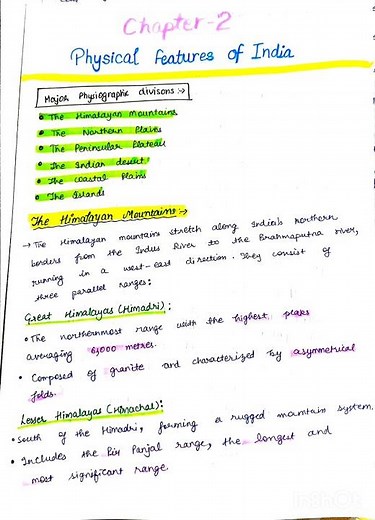 Chapter-2
Physical features of India
Major Physiographic divisons :→
• The Himalayan Mountains
• The Northern Plains
• The Peninsular Plateau
• The Indian desert
• The Coastal Plains
• The Islands
The Himalayan Mountains :→
→ The Himalayan mountains stretch along India's northern
borders from the Indus River to the Brahmaputra river,
running in a west-east direction. They consist of
three parallel ranges:
Great Himalayas (Himadri) :
• The northernmost range with the highest peaks
averaging 6,000 metres.
• Composed of granite and characterized by asymmetrical
folds.
Lesser Himalayas (Himachal) :
• South of the Himadri, forming a rugged mountain system.
• Includes the Pir Panjal range, the longest and
most significant range.